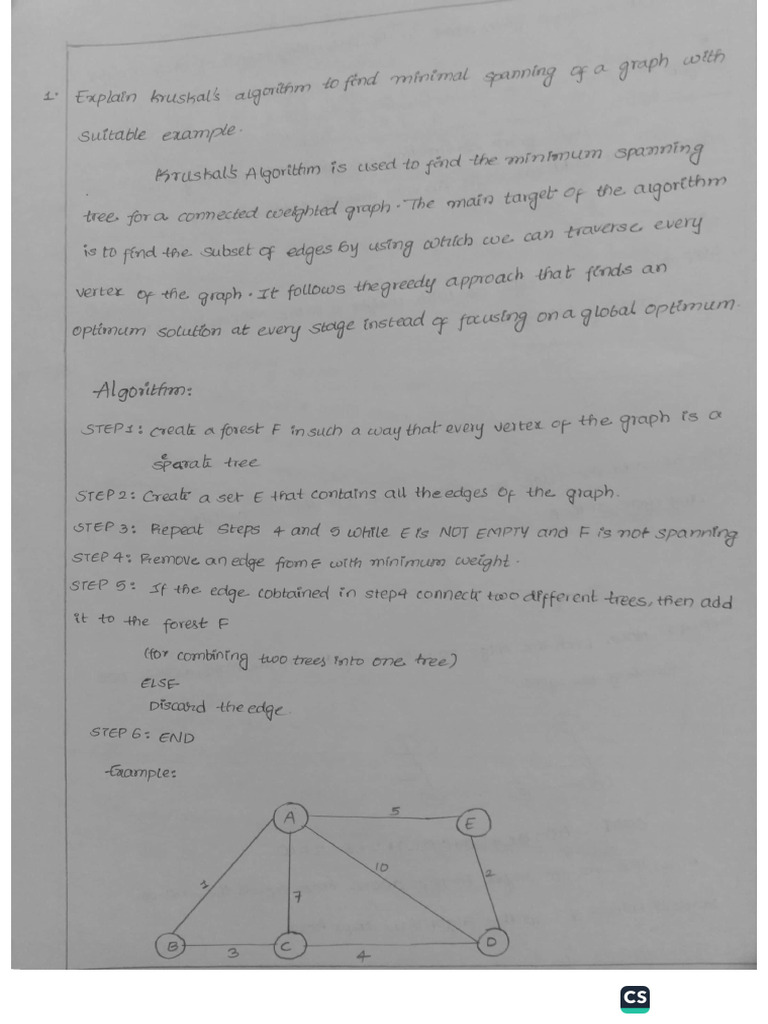 1. Explain kruskal's algorithm to find minimal spanning of a graph with
suitable example.
Kruskal's Algorithm is used to find the minimum spanning
tree for a connected weighted graph. The main target of the algorithm
is to find the subset of edges by using which we can traverse every
vertex of the graph. It follows the greedy approach that finds an
optimum solution at every stage instead of focusing on a global optimum.
Algorithm:
STEP 1: Create a forest F in such a way that every vertex of the graph is a
seperate tree
STEP 2: Create a set E that contains all the edges of the graph.
STEP 3: Repeat Steps 4 and 5 while E is NOT EMPTY and F is not spanning
STEP 4: Remove an edge from E with minimum weight.
STEP 5: If the edge cobtained in step4 connects two different trees, then add
it to the forest F
(for combining two trees into one tree)
ELSE
Discard the edge.
STEP 6: END
Example:
A 5 E
1 7 10 2
B 3 C 4 D
CS